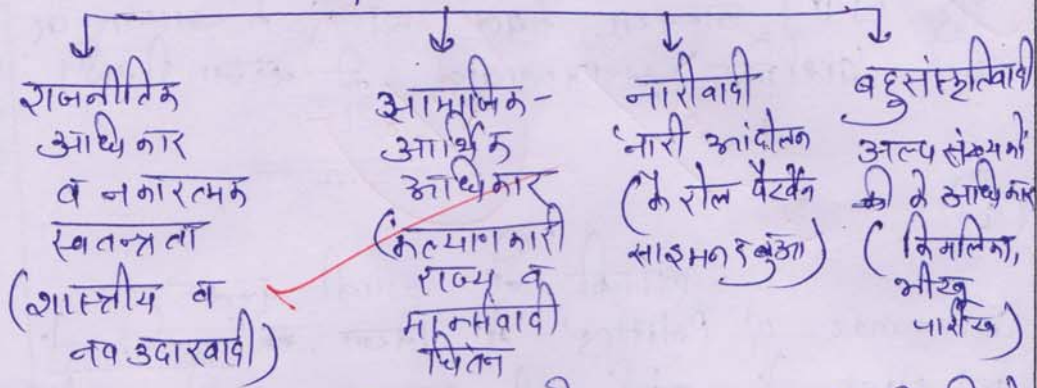 राजनीतिक
आधिकार
व नकारत्मक
स्वतन्त्रता
(शास्त्रीय व
नव उदारवादी)
सामाजिक-
आर्थिक
आधिकार
(कल्याणकारी
राज्य व
मार्क्सवादी
चिंतन
नारीवादी
नारी आंदोलन
(कैरोल पैटमैन
साइमन द बुआ)
बहुसांस्कृतिवादी
अल्पसंख्यकों
के आधिकार
(किमलिका,
भीखू
पारीख)